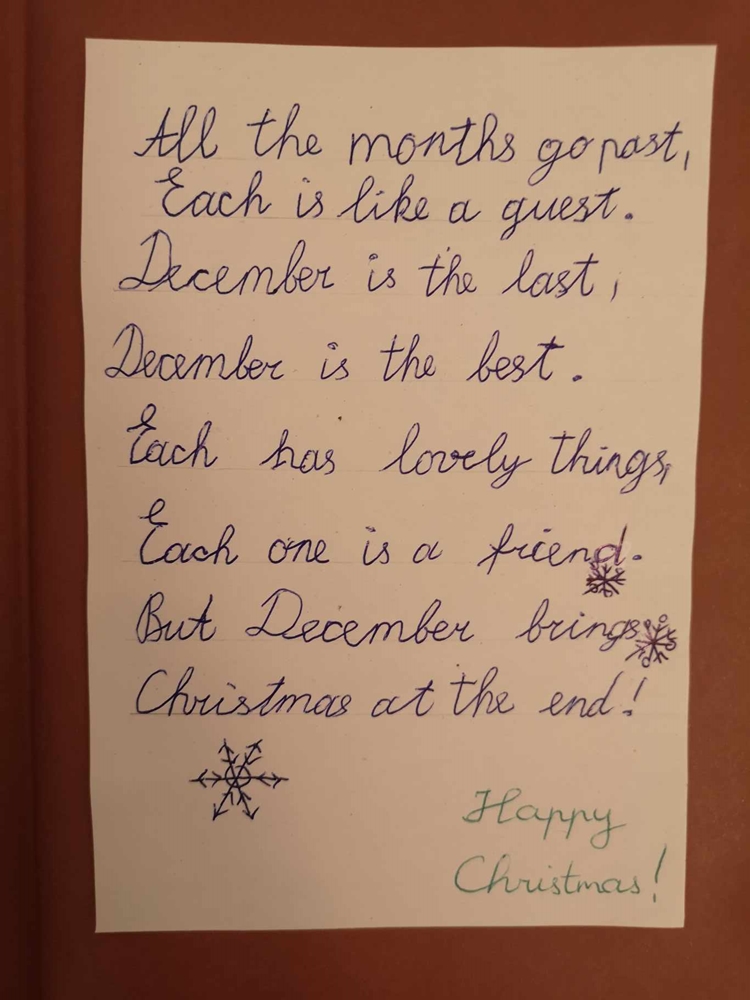 All the months go past,
Each is like a guest.
December is the last,
December is the best.
Each has lovely things,
Each one is a friend.
But December brings
Christmas at the end!
Happy
Christmas!